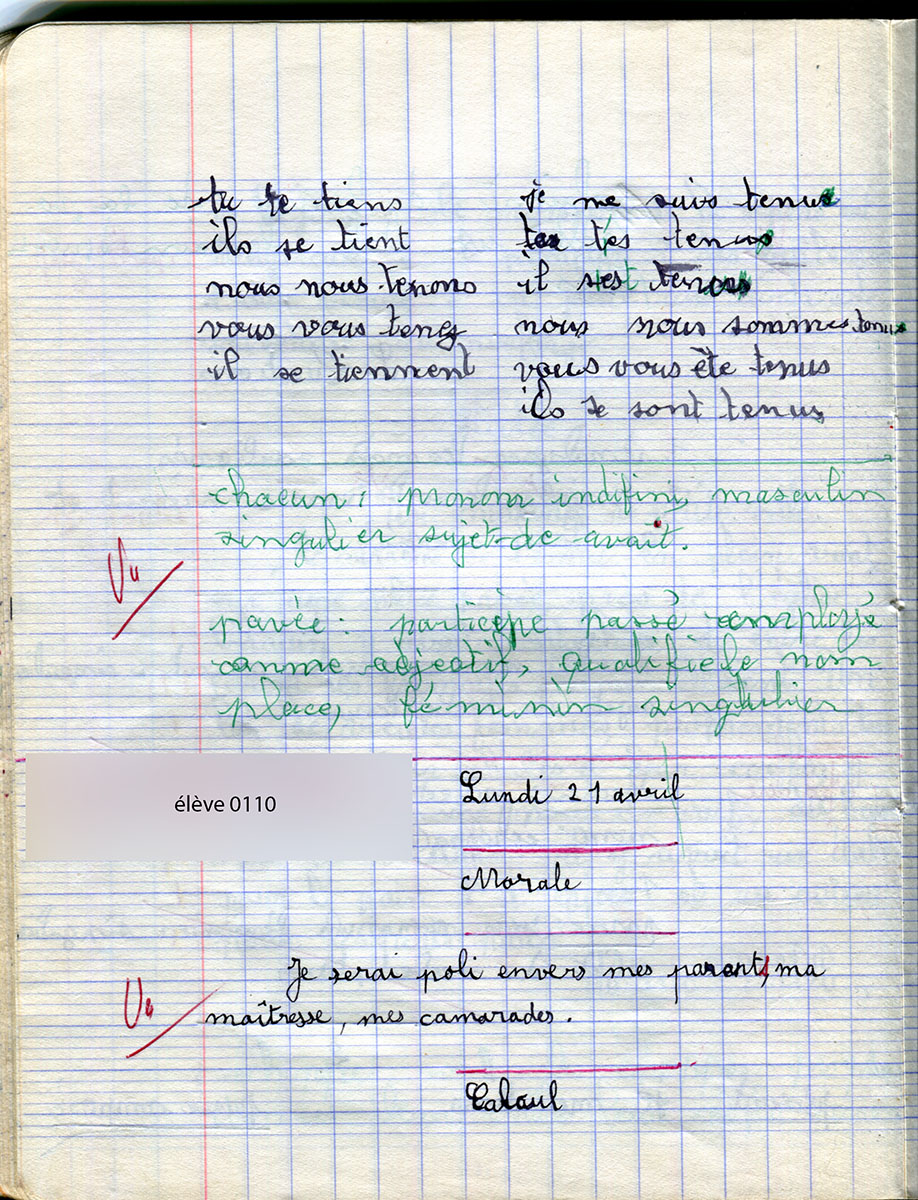 tu te tiens
ils se tient
nous nous tenons
vous vous tenez
il se tiennent
je me suis tenus
tu t'es tenus
il s'est tenus
nous nous sommes tenus
vous vous ête tenus
ils se sont tenus
chacun : pronom indifini, masculin
singulier sujet de avait.
Vu
pavée : participe passé employé
comme adjectif, qualifie le nom
place, féminin singulier
élève 0110
Lundi 21 avril
Morale
Je serai poli envers mes parents, ma
Vu
maîtresse, mes camarades.
Calcul